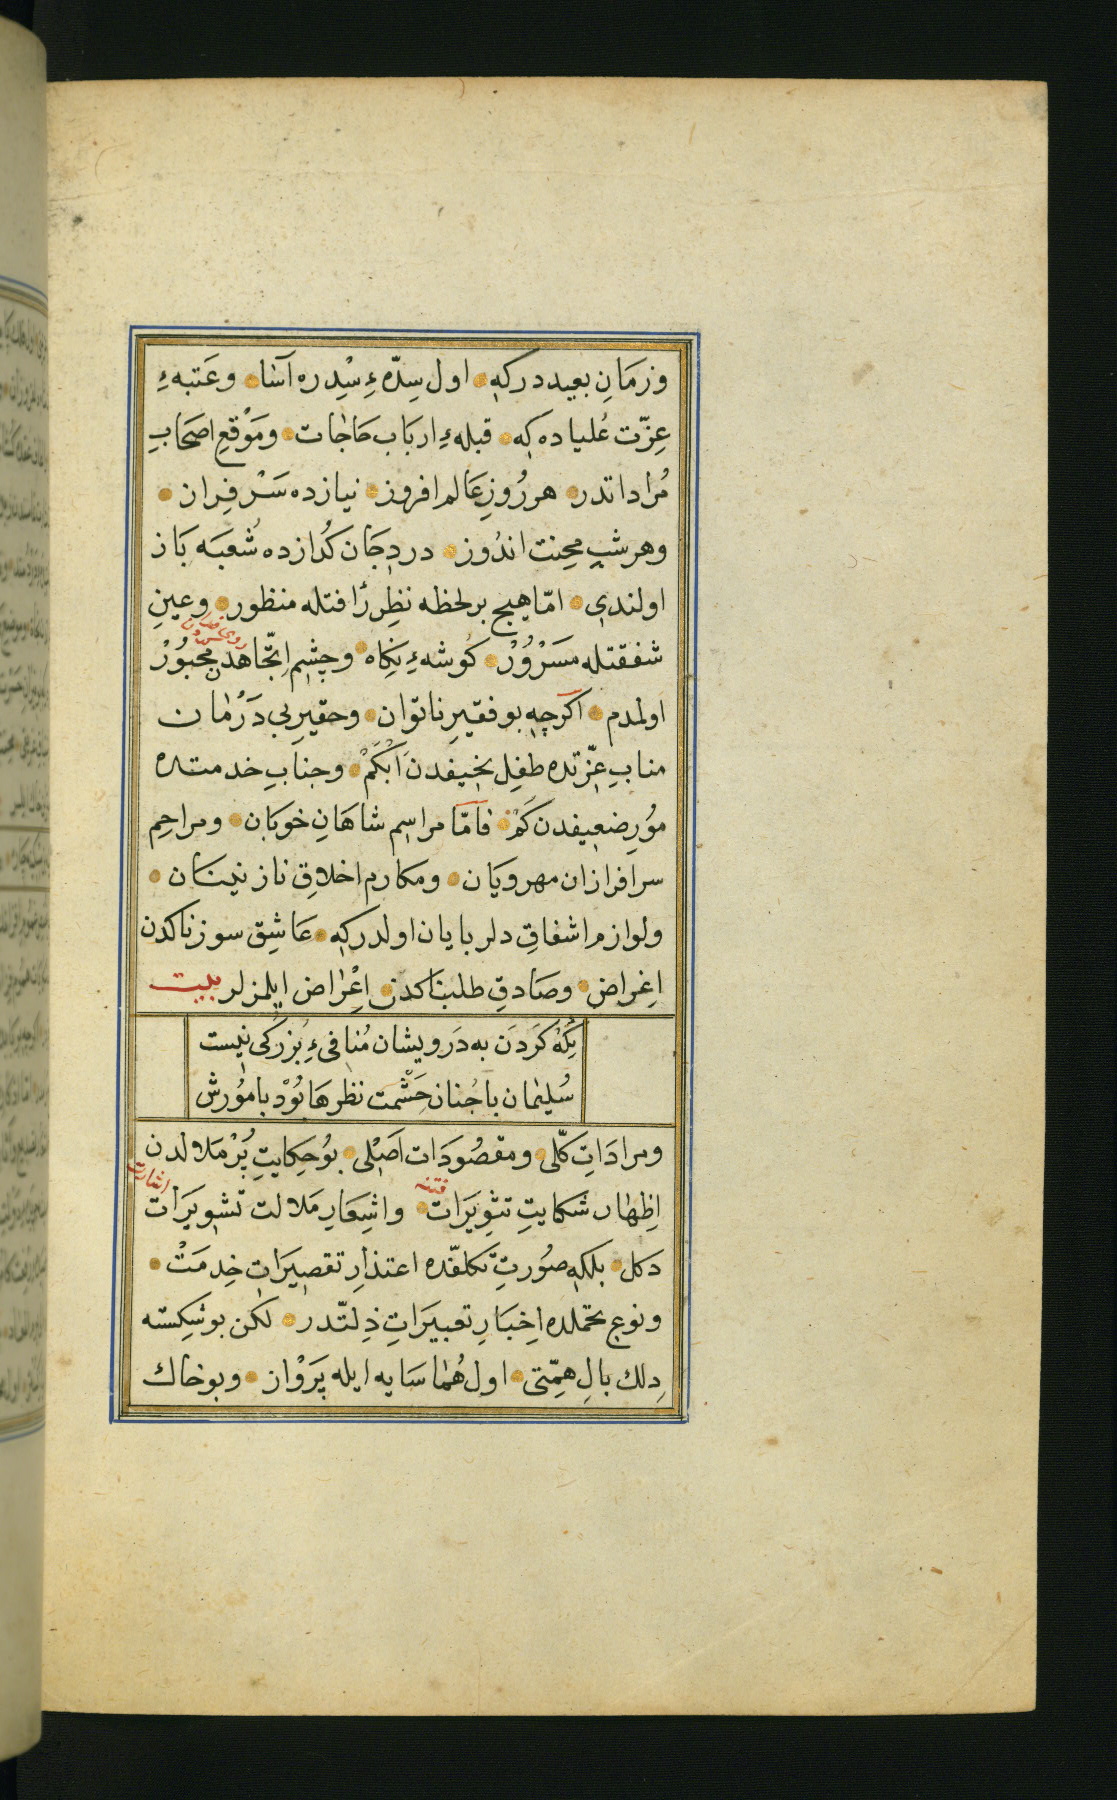 وزمَانِ بعيددركه اول سِدّهءِ سِدره آسَا وعَتبهءِ
عِزّت عُلياده كه قبلهءِ ارباب حَاجات ومَوْقعِ اصحَابِ
مُراداتدر هر رُوزِ عَالم افروز نيازده سَرْفِران
وهرشبِ محِنت اندُوز دردِ جَان كُدازده شُعبَه بَاز
اولندى امّا هيج برلحظه نظِر رأفتله منظور وعينِ
شفقتله مسَرْوُرْ كوشهءِ نِكاه وچشمِ اتّجاهدن مجبُورْ
اولمدم اكرچه بو فقيرِ ناتوّان وحقيرِ بى دَرْمان
منابِ عزّتده طفلِ نحيفدن اَبْكَمْ وجنابِ خدمتده
مؤرِ ضعيفدن كَمْ فامّا مراسم شاهَانِ خوبَان ومراحمِ
سرافرازان مهرويَان ومكارم اخلاقِ نازنينَان
ولوازم اشفاقِ دلربايان اولدركه عَاشِقِ سوزناكدن
اِغراض وصَادقِ طلبناكدن اِعْرَاض ايلمزلر بيت
نِكَهْ كَردَن به دَرويشان مُنافىءِ بُزركى نيست
سُليمَان باچُنان حَشْمت نظرهَا بُوْد بامُورش
ومرادَاتِ كلّى ومقصُودَات اَصْلى بوُ حِكايتِ بُرْمَلالدن
اِظهَار شكايتِ تثوِيرَات فتنه واشِعَارِ مَلالت تشوِيرَات اشارت
دكل بلكه صوُرتِ تكلفّده اعتذارِ تقصيرَاتِ خِدمَتْ
ونوعِ تحمّلده اِخبَارِ تعبيرَاتِ ذِلتّدر لكن بوشكسته
دِلك بالِ هِمّتى اول هُمَا سَايه ايله پَرْوَاز وبوخاك